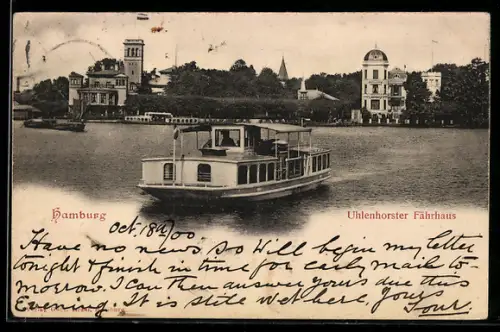 Hamburg
Uhlenhorster Fährhaus
Oct. 18th/00
Have no news so will begin my letter
tonight & finish in time for early mail to-
morrow. I can then answer yours due this
Evening. It is still wet here, Yours